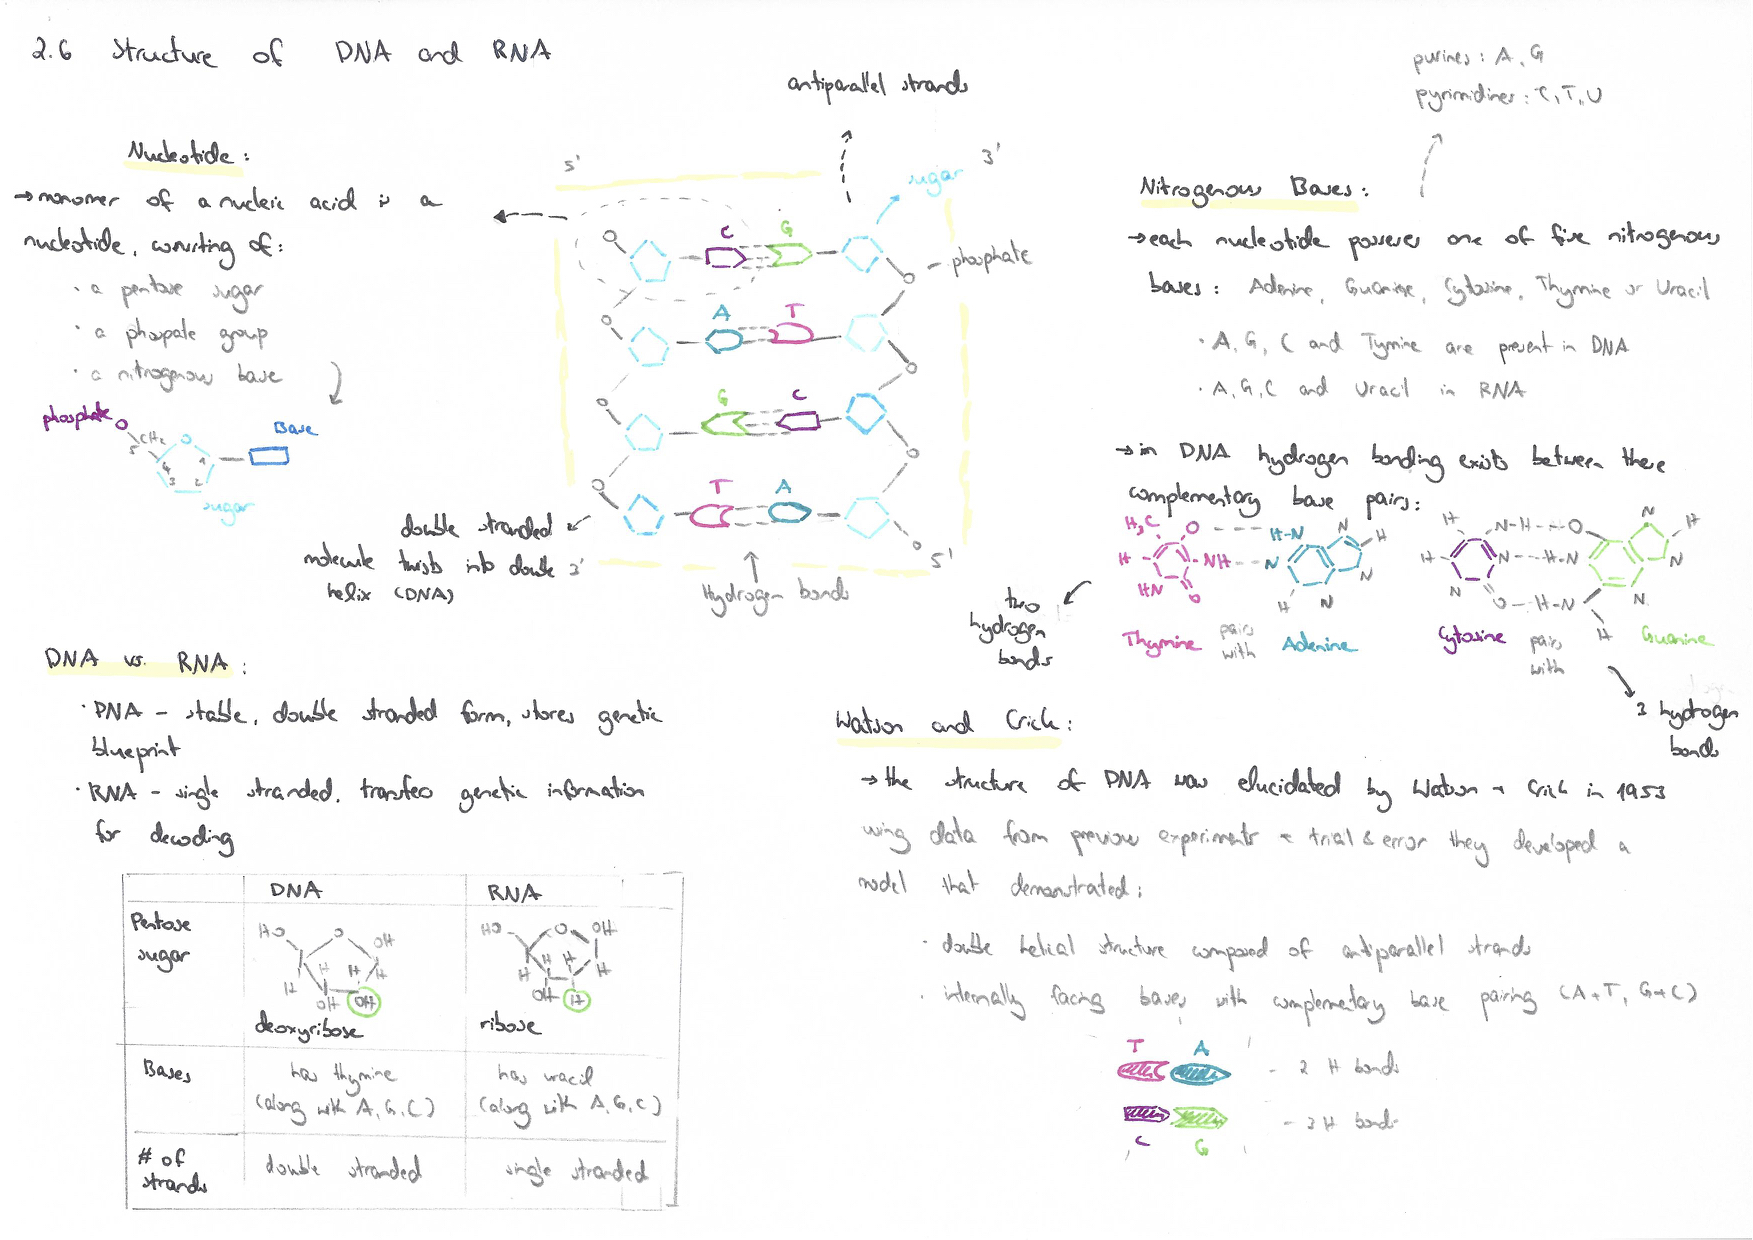 2.6 Structure of DNA and RNA
purines : A, G
pyrimidines : C, T, U
antiparallel strands
Nucleotide :
→ monomer of a nucleic acid is a
nucleotide, consisting of :
· a pentose sugar
· a phospate group
· a nitrogenous base
phosphate
CH₂
5
4
3
2
1
Base
sugar
5'
3'
sugar
phosphate
C G
A T
G C
T A
3'
5'
Hydrogen bonds
double stranded
molecule twists into double
helix (DNA)
Nitrogenous Bases :
→ each nucleotide posseses one of five nitrogenous
bases : Adenine, Guanine, Cytosine, Thymine or Uracil
· A, G, C and Tymine are present in DNA
· A, G, C and Uracil in RNA
→ in DNA hydrogen bonding exists between these
complementary base pairs :
H₃C O H-N N H
H NH N N
HN O H N
H N-H O N H
H N H-N N
N O H-N N
H
two
hydrogen
bonds
Thymine pairs with Adenine
Cytosine pairs with Guanine
3 hydrogen
bonds
DNA vs. RNA :
· DNA - stable, double stranded form, stores genetic
blueprint
· RNA - single stranded, transfers genetic information
for decoding
DNA RNA
Pentose
sugar
HO O OH
H H H H
OH OH
deoxyribose
HO O OH
H H H H
OH H
ribose
Bases
has thymine
(along with A, G, C)
has uracil
(along with A, G, C)
# of
strands
double stranded
single stranded
Watson and Crick :
→ the structure of DNA was elucidated by Watson + Crick in 1953
using data from previous experiments + trial & error they developed a
model that demonstrated :
· double helical structure composed of antiparallel strands
· internally facing bases with complementary base pairing (A+T, G+C)
T A - 2 H bonds
C G - 3 H bonds